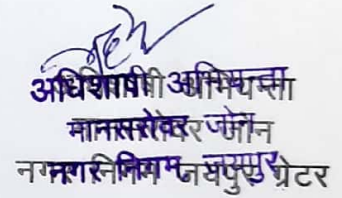 अधिशाषी अभियन्ता
मानसरोवर जोन
नगर निगम जयपुर ग्रेटर